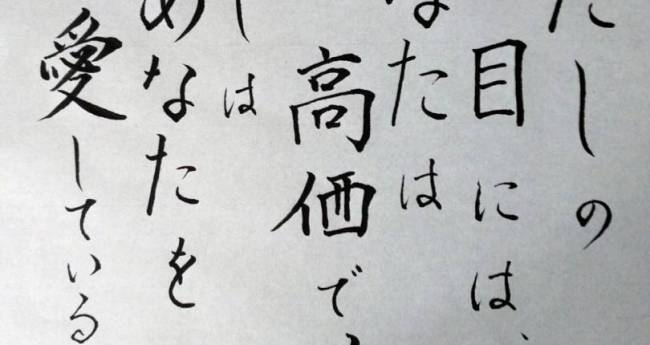 たしの
目には、
なたは
高価で
は
あなたを
愛している